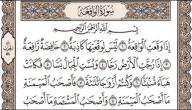 سورة الواقعة
بسم الله الرحمن الرحيم
إذا وقعت الواقعة ليس لوقعتها كاذبة خافضة رافعة
إذا رجت الأرض رجا وبست الجبال بسا فكانت
هباء منبثا وكنتم أزواجا ثلاثة فأصحاب الميمنة
ما أصحاب الميمنة وأصحاب المشأمة ما أصحاب